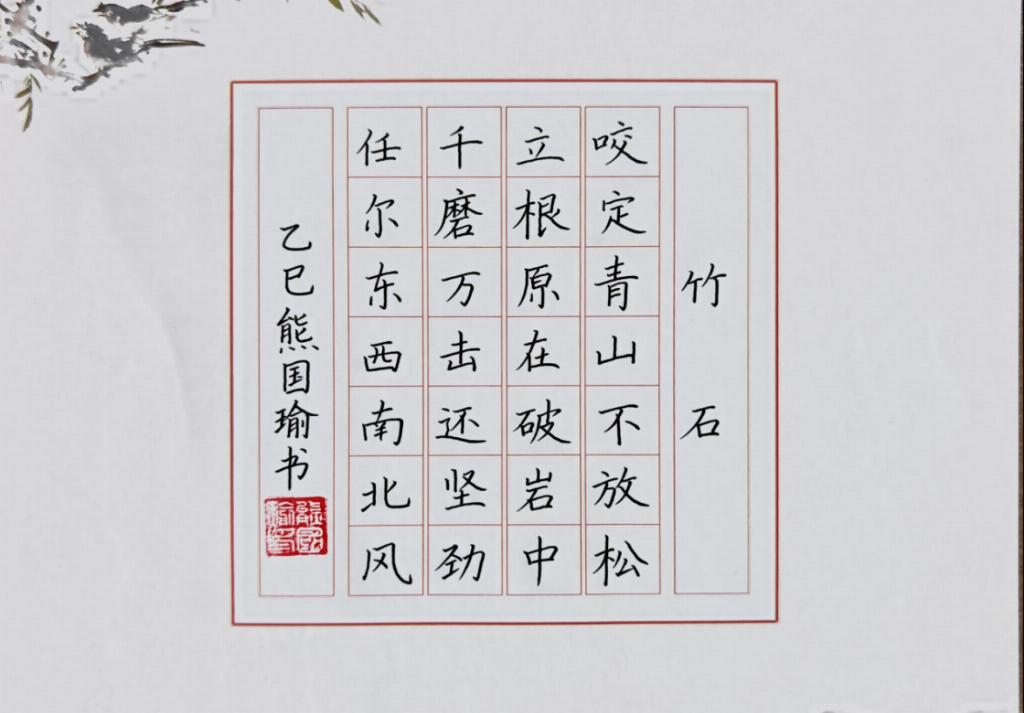 竹石
咬定青山不放松
立根原在破岩中
千磨万击还坚劲
任尔东西南北风
乙巳熊国瑜书